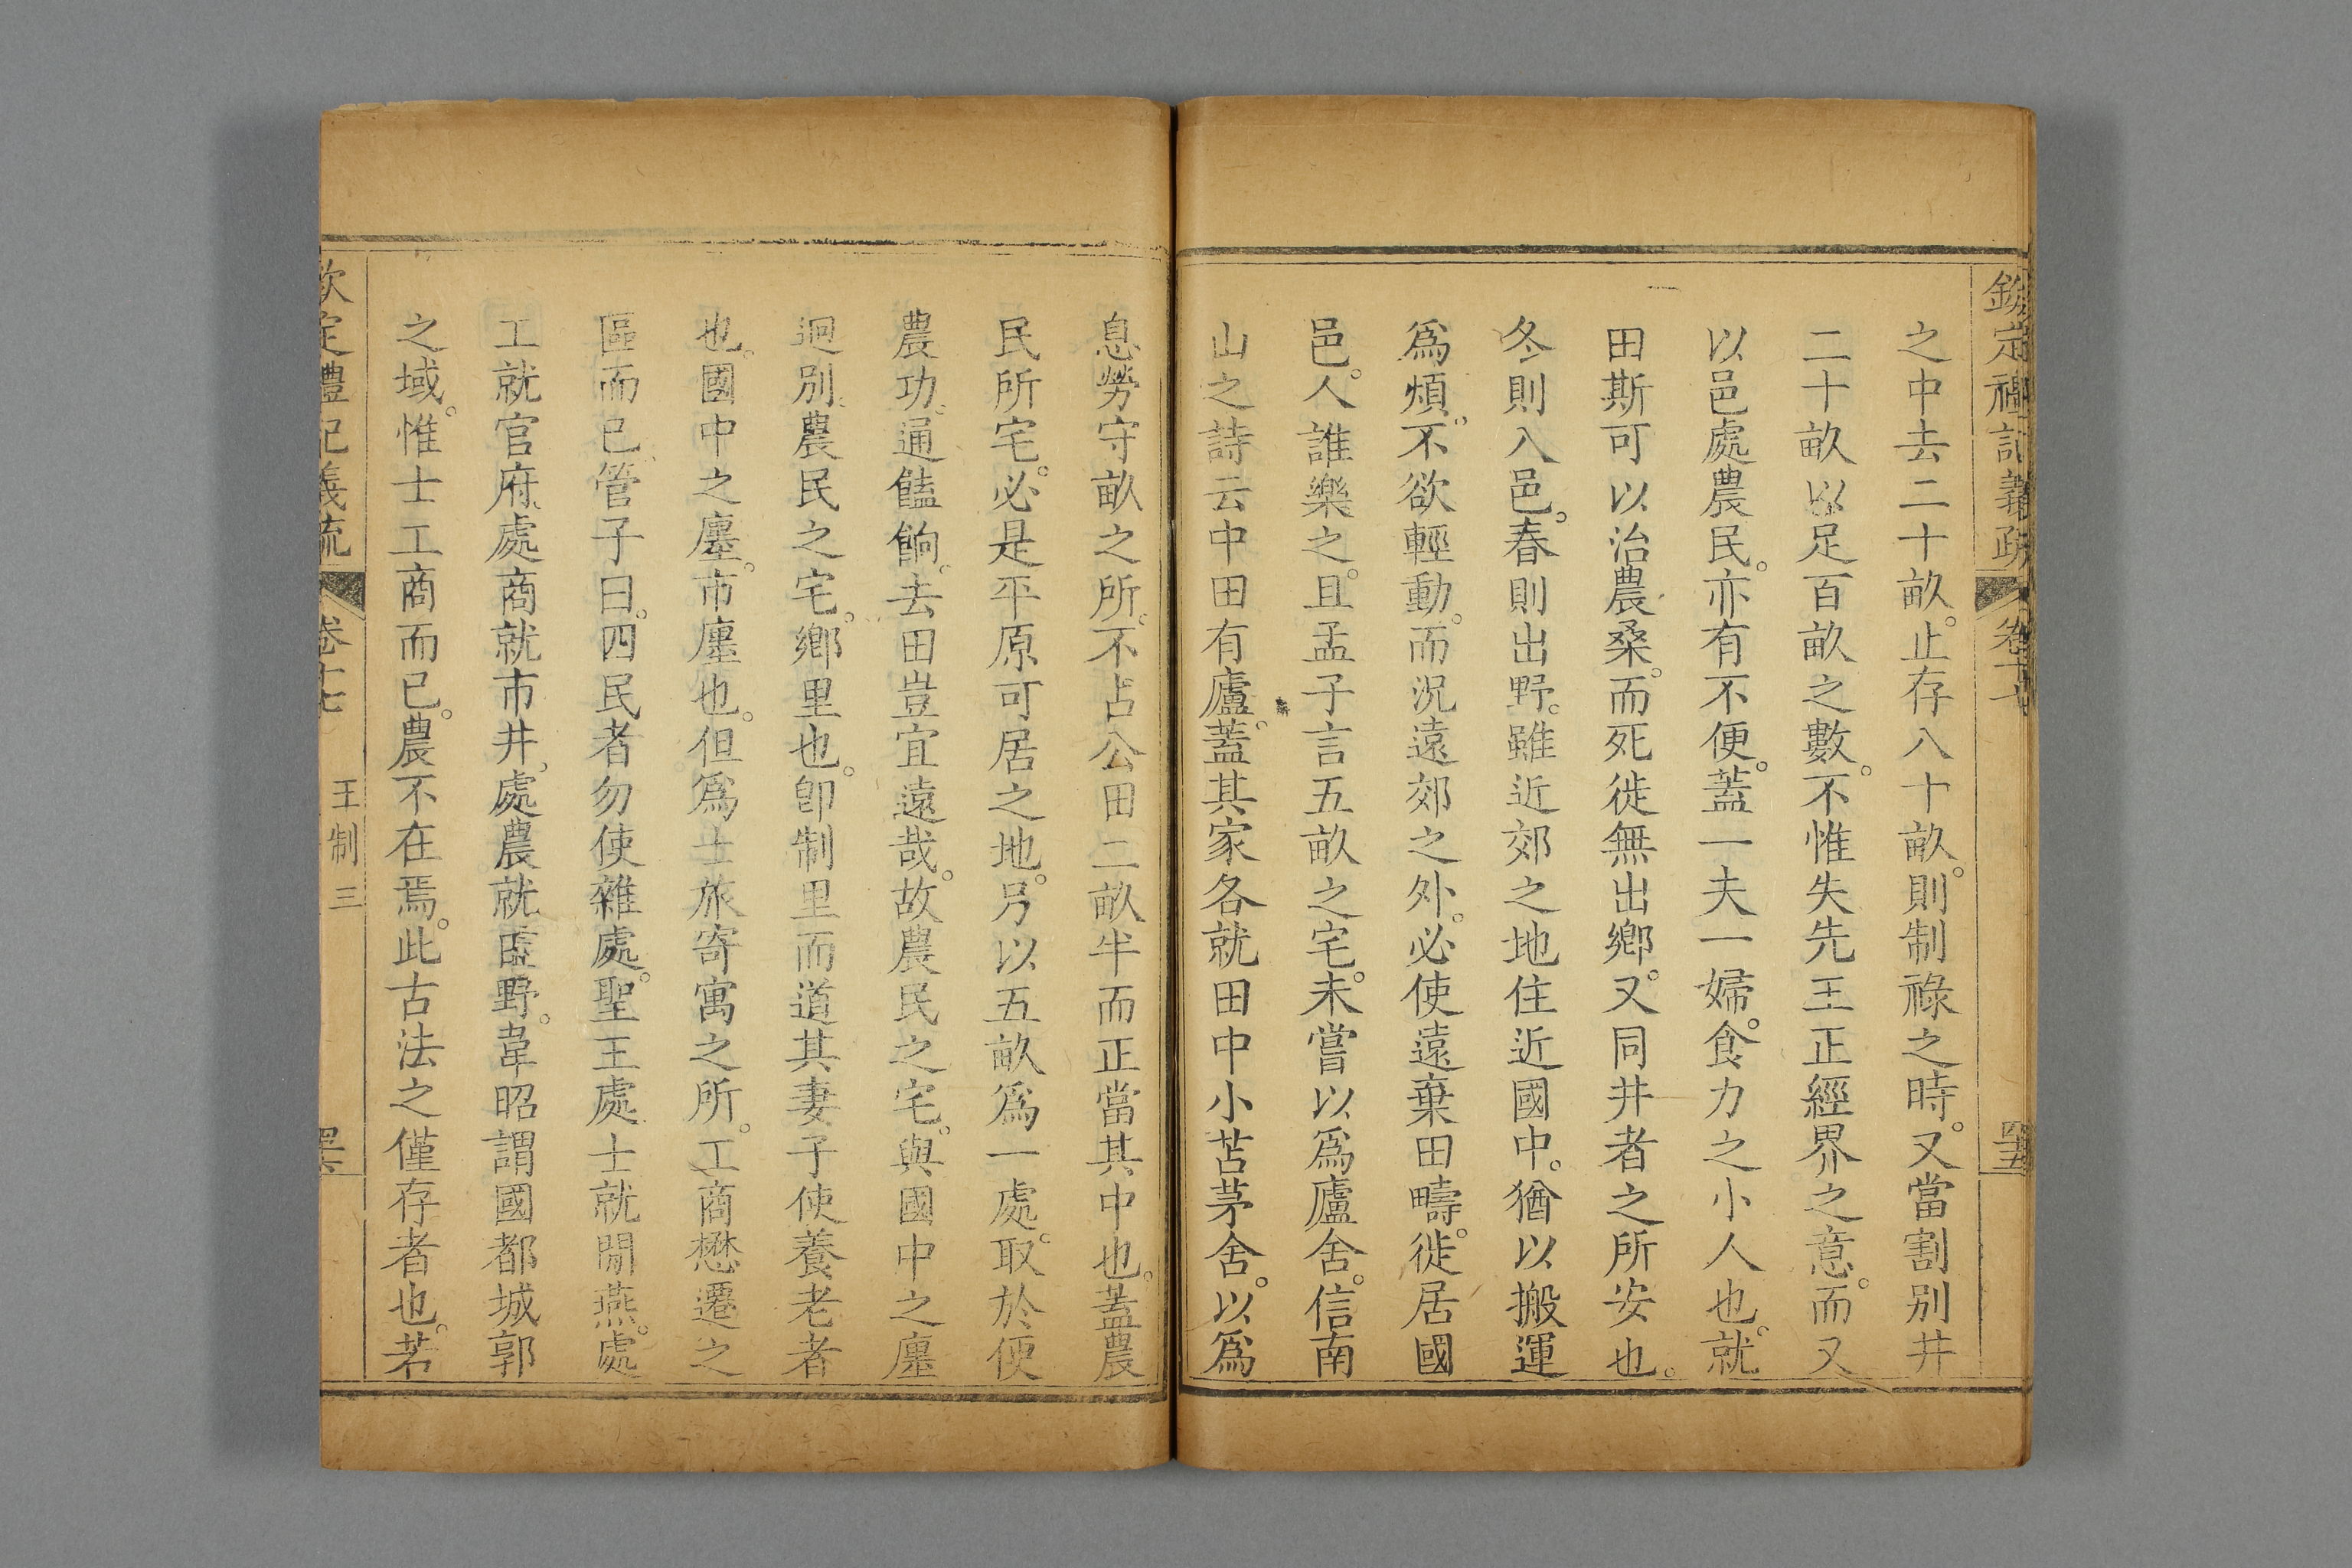 欽定禮記義疏 卷十七 四十五
之中去二十畝。止存八十畝。則制祿之時。又當割別井
二十畝以足百畝之數。不惟失先王正經界之意。而又
以邑處農民。亦有不便。蓋一夫一婦。食力之小人也。就
田斯可以治農桑。而死徙無出鄉。又同井者之所安也。
冬則入邑。春則出野。雖近郊之地住近國中。猶以搬運
爲煩。不欲輕動。而況遠郊之外。必使遠棄田疇。徙居國
邑。人誰樂之。且孟子言五畝之宅。未嘗以爲廬舍。信南
山之詩云中田有廬。蓋其家各就田中小苫茅舍。以爲
息勞守畝之所。不占公田二畝半而正當其中也。蓋農
民所宅。必是平原可居之地。另以五畝爲一處。取於便
農功。通饁餉。去田豈宜遠哉。故農民之宅。與國中之廛
迥別。農民之宅。鄉里也。卽制里而道其妻子使養老者
也。國中之廛。市廛也。但爲士旅寄寓之所。工商懋遷之
區而已。管子曰。四民者勿使雜處。聖王處士就閒燕。處
工就官府。處商就市井。處農就田野。韋昭謂國都城郭
之域。惟士工商而已。農不在焉。此古法之僅存者也。若
欽定禮記義疏 卷十七 王制三